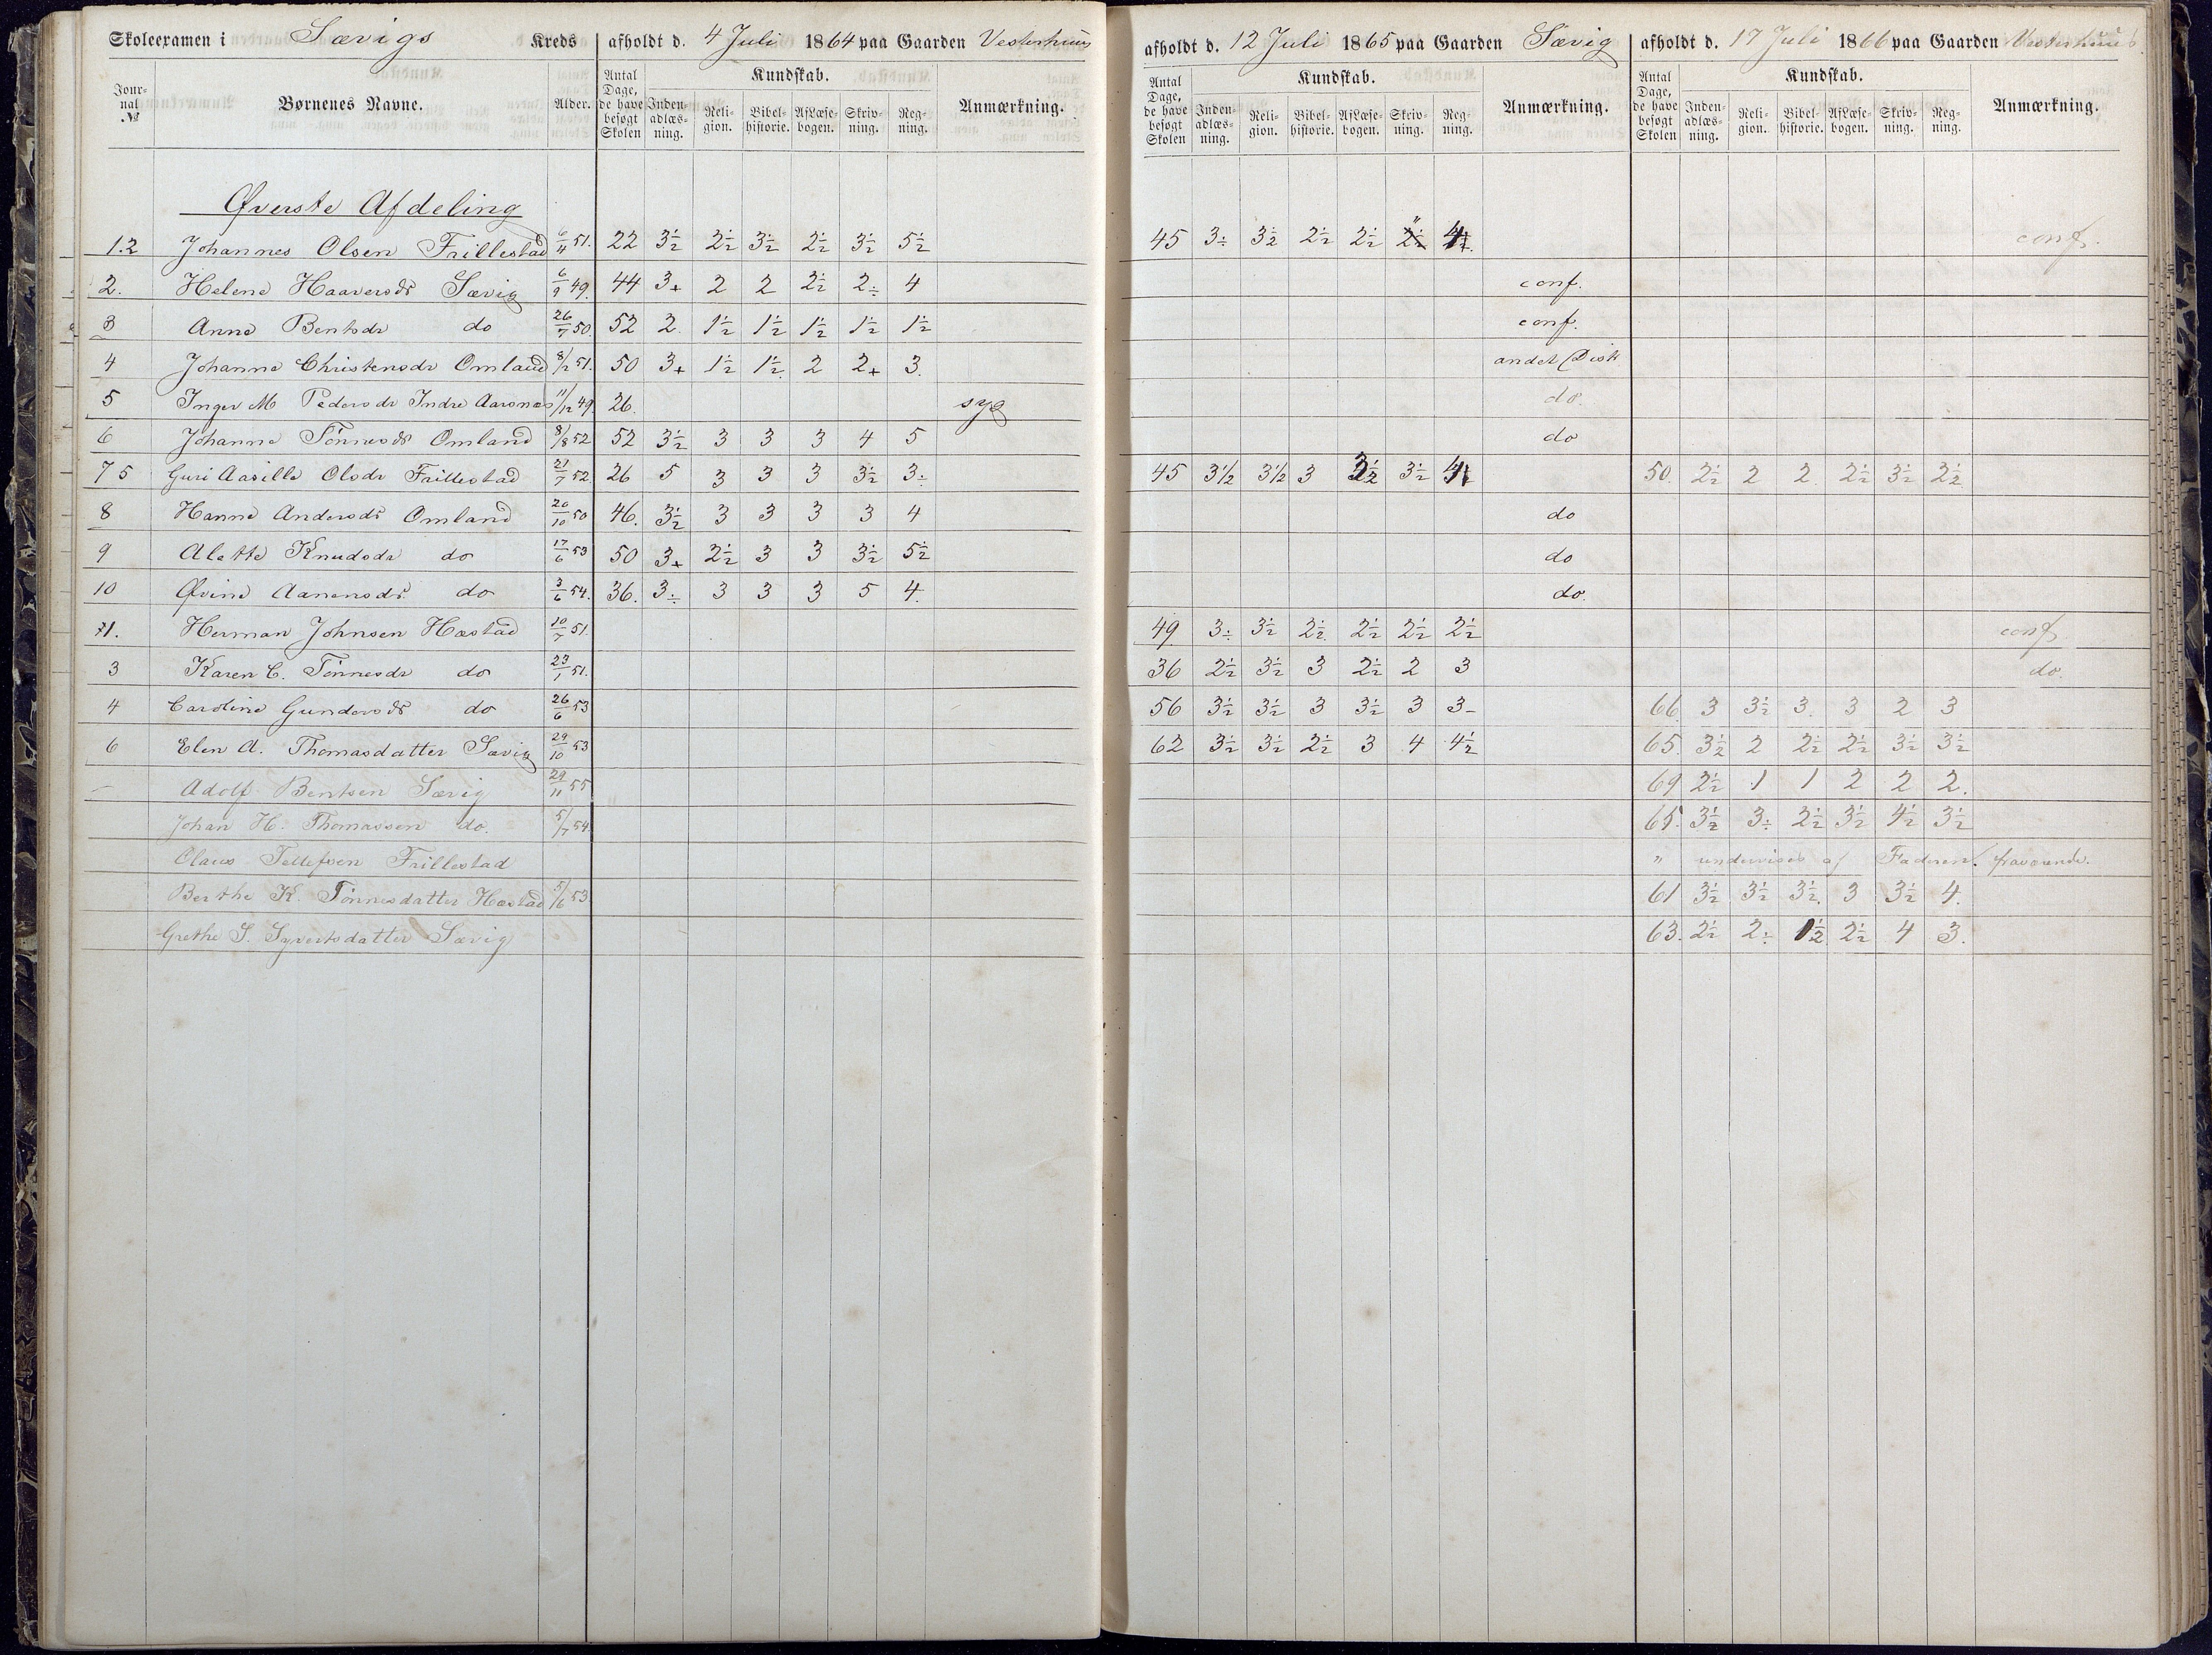 Skoleexamen i Sævigs Kreds afholdt d. 4 Juli 1864 paa Gaarden Vesterhuus afholdt d. 12 Juli 1865 paa Gaarden Sævig afholdt d. 17 Juli 1866 paa Gaarden Vesterhuus
Journal № Børnenes Navne. Alder. Antal Dage, de have besøgt Skolen Kundskab. Indenadlæsning. Religion. Bibelhistorie. Af Læsebogen. Skrivning. Regning. Anmærkning. Antal Dage, de have besøgt Skolen Kundskab. Indenadlæsning. Religion. Bibelhistorie. Af Læsebogen. Skrivning. Regning. Anmærkning. Antal Dage, de have besøgt Skolen Kundskab. Indenadlæsning. Religion. Bibelhistorie. Af Læsebogen. Skrivning. Regning. Anmærkning.
Øverste Afdeling
1.2 Johannes Olsen Frillestad 6/11 51. 22 3½ 2½ 3½ 2½ 3½ 5½ 45 3÷ 3½ 2½ 2½ " conf.
2. Helene Haaversdr Sævig 6/9 49. 44 3+ 2 2 2½ 2÷ 4 conf.
3 Anne Bentsdr do 26/7 50. 52 2. 1½ 1½ 1½ 1½ 1½ conf.
4 Johanne Christensdr Omland 8/2 51. 50 3+ 1½ 1½ 2 2+ 3. andet Distr
5 Inger M Pedersdr Indre Aarsnes 11/12 49. 26. syg do.
6 Johanne Tönnesdr Omland 8/8 52 52 3½ 3 3 3 4 5 do
7 5 Guri Aasille Olsdr Frillestad 21/7 52. 26 5 3 3 3 3½ 3÷ 45 3½ 3½ 3 3½ 50. 2½ 2 2. 2½ 3½ 2½
8 Hanne Andersdr Omland 20/10 50 46. 3½ 3 3 3 3 4 do
9 Alette Knudsdr do 17/6 53 50 3+ 2½ 3 3 3½ 5½ do
10 Øvine Aanensdr do 3/6 54. 36. 3÷ 3 3 3 5 4. do.
11. Herman Johnsen Hæstad 10/7 51. 49 3÷ 3½ 2½ 2½ 2½ 2½ conf
3 Karen C. Tönnesdr do 23/1 51. 36 2½ 3½ 3 2½ 2 3 do.
4 Caroline Gundersdr do 26/6 53 56 3½ 3½ 3 3½ 3 3- 66. 3 3½ 3. 3 2 3
6 Elen A. Thomasdatter Sævig 29/10 53 62 3½ 3½ 2½ 3 4 4½ 65. 3½ 2 2½ 2½ 3½ 3½
– Adolf Bentsen Sævig 29/11 55 69 2½ 1 1 2 2 2.
Johan H. Thomassen do. 5/7 54. 65. 3½ 3÷ 2½ 3½ 4½ 3½
Olaus Tellefsen Frillestad " undervises af Faderen. fraværende.
Berthe K. Tönnesdatter Hæstad 5/6 53 61 3½ 3½ 3½ 3 3½ 4.
Grethe S. Syvertsdatter Sævig 63. 2½ 2÷ 1½ 2½ 4 3.